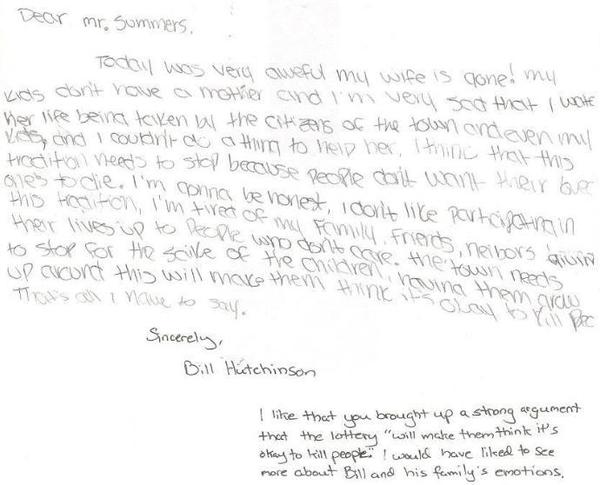 Dear mr. Summers.
Today was very aweful my wife is gone! my
kids don't have a mother and I'm very sad that I
her life being taken by the citizens of the town and even my
kids, and I couldn't do a thing to help her. I think that this
tradition needs to stop because people don't want their
one's to die. I'm gonna be honest, I don't like
this tradition, I'm tired of my family, friends, neibors
their lives up to people who don't care. the town needs
to stop for the sake of the children, having them grow
up around this will make them think it's okay to kill
That's all I have to say.
Sincerely,
Bill Hutchinson
I like that you brought up a strong argument
that the lottery "will make them think it's
okay to kill people." I would have liked to see
more about Bill and his family's emotions.